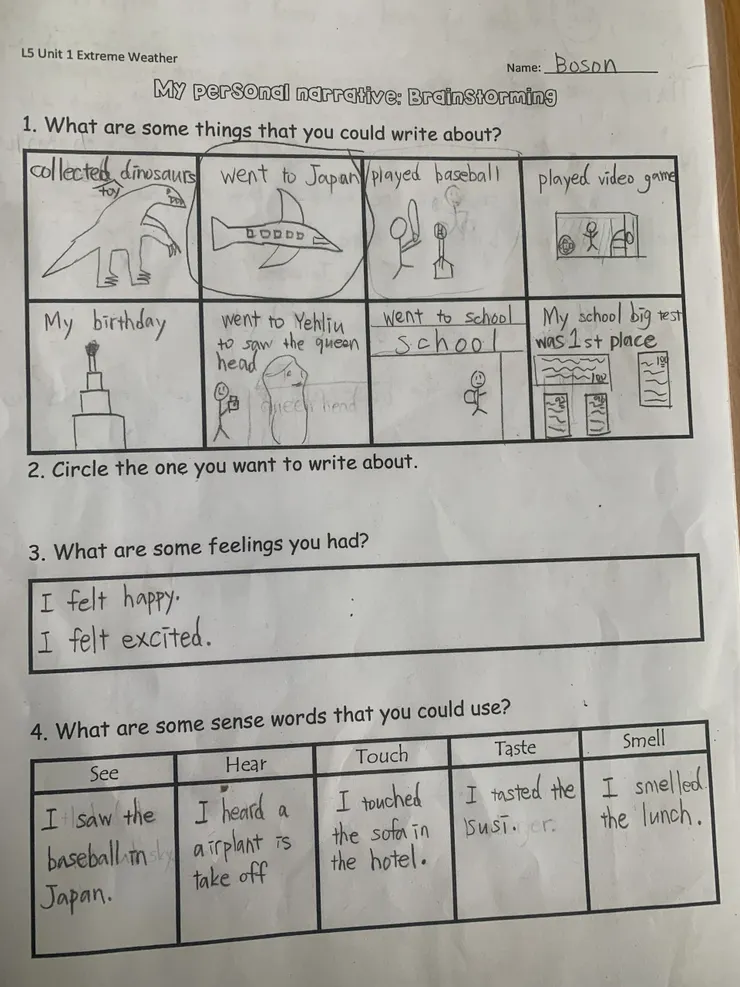 L5 Unit 1 Extreme Weather
Name: Boson
My personal narrative: Brainstorming
1. What are some things that you could write about?
collected dinosaurs
toy
went to Japan
played baseball
played video game
My birthday
went to Yehliu
to saw the queen
head
queen head
went to school
school
My school big test
was 1st place
100
100
2. Circle the one you want to write about.
3. What are some feelings you had?
I felt happy.
I felt excited.
4. What are some sense words that you could use?
See
Hear
Touch
Taste
Smell
I saw the
baseball in
Japan.
I heard a
airplant is
take off
I touched
the sofa in
the hotel.
I tasted the
susi.
I smelled
the lunch.